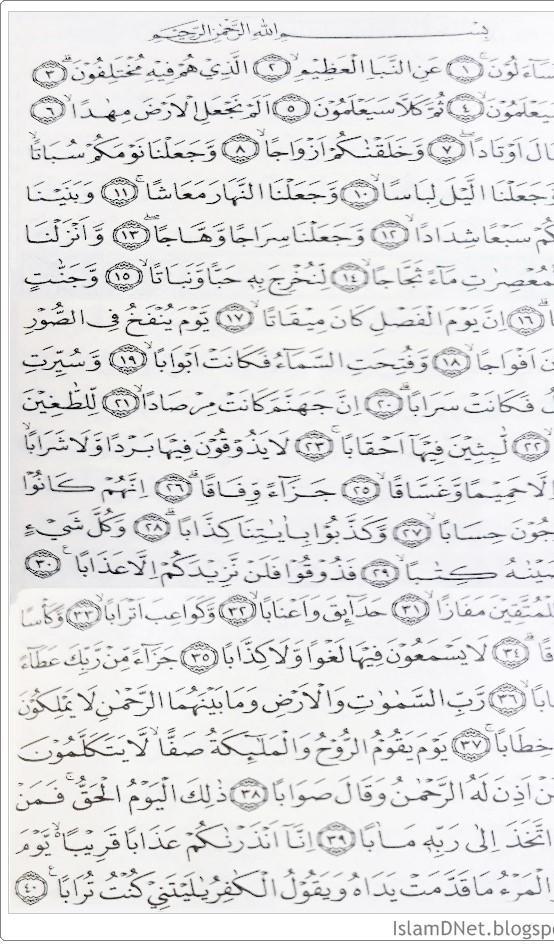 بِسْمِ اللهِ الرَّحْمٰنِ الرَّحِيْمِ
سَآءَلُوْنَ ۚ ﴿١﴾ عَنِ النَّبَاِ الْعَظِيْمِ ۙ ﴿٢﴾ الَّذِيْ هُمْ فِيْهِ مُخْتَلِفُوْنَ ۗ ﴿٣﴾
يَعْلَمُوْنَ ۙ ﴿٤﴾ ثُمَّ كَلَّا سَيَعْلَمُوْنَ ﴿٥﴾ اَلَمْ نَجْعَلِ الْاَرْضَ مِهٰدًا ۙ ﴿٦﴾
بَالَ اَوْتَادًا ۖ ﴿٧﴾ وَّخَلَقْنٰكُمْ اَزْوَاجًا ۙ ﴿٨﴾ وَّجَعَلْنَا نَوْمَكُمْ سُبَاتًا ۙ
وَجَعَلْنَا الَّيْلَ لِبَاسًا ۙ ﴿١٠﴾ وَّجَعَلْنَا النَّهَارَ مَعَاشًا ۖ ﴿١١﴾ وَبَنَيْنَا
كُمْ سَبْعًا شِدَادًا ۙ ﴿١٢﴾ وَّجَعَلْنَا سِرَاجًا وَّهَّاجًا ۖ ﴿١٣﴾ وَّاَنْزَلْنَا
لْمُعْصِرٰتِ مَآءً ثَجَّاجًا ۙ ﴿١٤﴾ لِّنُخْرِجَ بِهٖ حَبًّا وَّنَبَاتًا ۙ ﴿١٥﴾ وَّجَنّٰتٍ
ا ۗ ﴿١٦﴾ اِنَّ يَوْمَ الْفَصْلِ كَانَ مِيْقَاتًا ۙ ﴿١٧﴾ يَّوْمَ يُنْفَخُ فِى الصُّوْرِ
نَ اَفْوَاجًا ۙ ﴿١٨﴾ وَّفُتِحَتِ السَّمَآءُ فَكَانَتْ اَبْوَابًا ۙ ﴿١٩﴾ وَّسُيِّرَتِ
لُ فَكَانَتْ سَرَابًا ۗ ﴿٢٠﴾ اِنَّ جَهَنَّمَ كَانَتْ مِرْصَادًا ۙ ﴿٢١﴾ لِّلطّٰغِيْنَ
﴿٢٢﴾ لّٰبِثِيْنَ فِيْهَآ اَحْقَابًا ۚ ﴿٢٣﴾ لَا يَذُوْقُوْنَ فِيْهَا بَرْدًا وَّلَا شَرَابًا ۙ
اِلَّا حَمِيْمًا وَّغَسَّاقًا ۙ ﴿٢٥﴾ جَزَآءً وِّفَاقًا ۗ ﴿٢٦﴾ اِنَّهُمْ كَانُوْا
جُوْنَ حِسَابًا ۙ ﴿٢٧﴾ وَّكَذَّبُوْا بِاٰيٰتِنَا كِذَّابًا ۗ ﴿٢٨﴾ وَكُلَّ شَيْءٍ
يْنٰهُ كِتٰبًا ۙ ﴿٢٩﴾ فَذُوْقُوْا فَلَنْ نَّزِيْدَكُمْ اِلَّا عَذَابًا ۚ ﴿٣٠﴾
لْمُتَّقِيْنَ مَفَازًا ۙ ﴿٣١﴾ حَدَآئِقَ وَاَعْنَابًا ۙ ﴿٣٢﴾ وَّكَوَاعِبَ اَتْرَابًا ۙ ﴿٣٣﴾ وَّكَاْسًا
قًا ۗ ﴿٣٤﴾ لَا يَسْمَعُوْنَ فِيْهَا لَغْوًا وَّلَا كِذّٰبًا ۚ ﴿٣٥﴾ جَزَآءً مِّنْ رَّبِّكَ عَطَآءً
ابًا ۙ ﴿٣٦﴾ رَّبِّ السَّمٰوٰتِ وَالْاَرْضِ وَمَا بَيْنَهُمَا الرَّحْمٰنِ لَا يَمْلِكُوْنَ
خِطَابًا ۚ ﴿٣٧﴾ يَوْمَ يَقُوْمُ الرُّوْحُ وَالْمَلٰٓئِكَةُ صَفًّا ۙ لَّا يَتَكَلَّمُوْنَ
نْ اَذِنَ لَهُ الرَّحْمٰنُ وَقَالَ صَوَابًا ﴿٣٨﴾ ذٰلِكَ الْيَوْمُ الْحَقُّ ۚ فَمَنْ
اتَّخَذَ اِلٰى رَبِّهٖ مَاٰبًا ﴿٣٩﴾ اِنَّآ اَنْذَرْنٰكُمْ عَذَابًا قَرِيْبًا ۚ يَّوْمَ
الْمَرْءُ مَا قَدَّمَتْ يَدٰهُ وَيَقُوْلُ الْكٰفِرُ يٰلَيْتَنِيْ كُنْتُ تُرٰبًا ۚ ﴿٤٠﴾
IslamDNet.blogsp